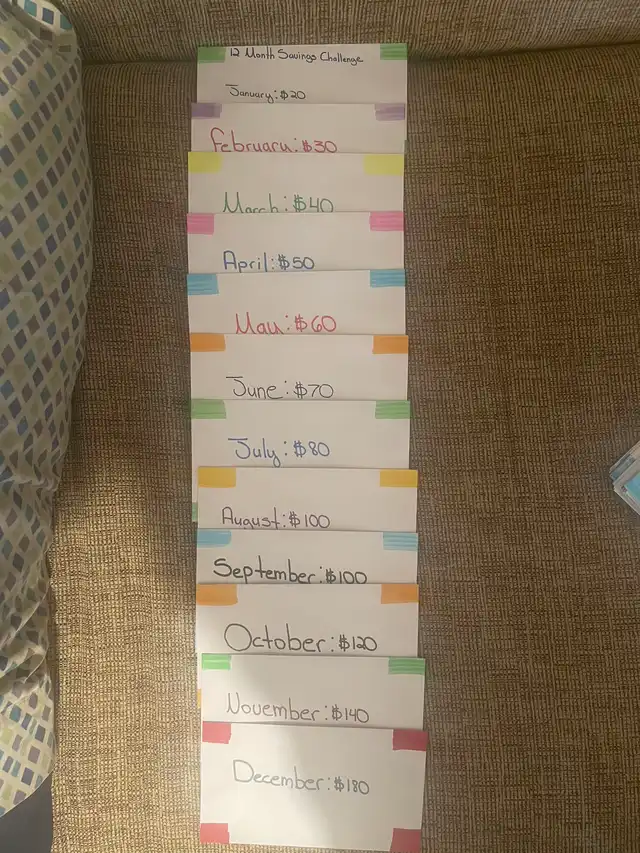 12 Month Savings Challenge
January: $20
February: $30
March: $40
April: $50
May: $60
June: $70
July: $80
August: $100
September: $100
October: $120
November: $140
December: $180